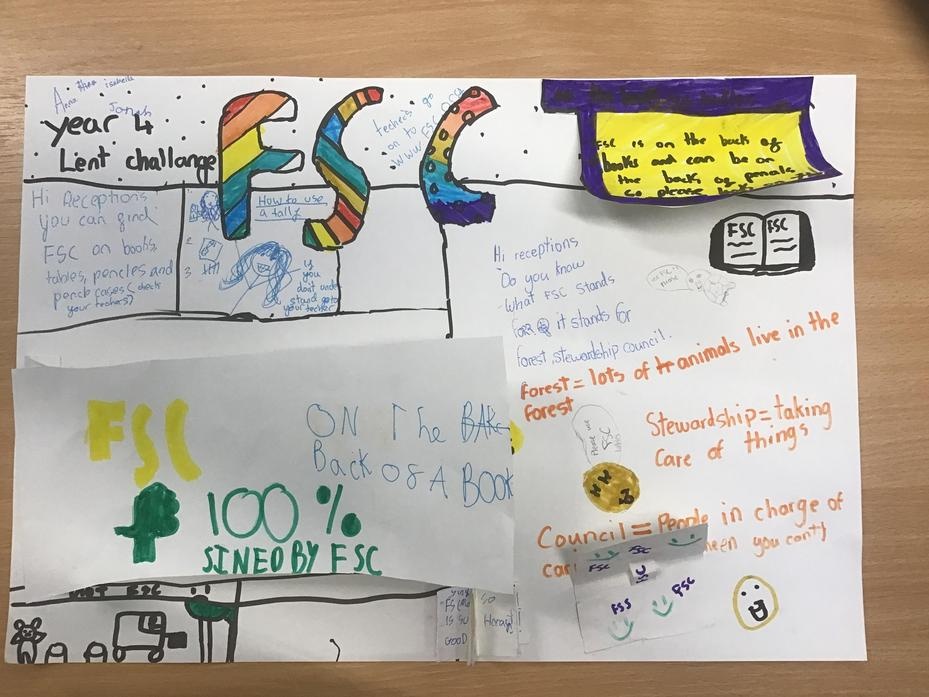 Anna Anna isabella
Jonah
year 4
Lent challange
FSC
techers go
on to
www.FSC.org
FSC is on the back of
books and can be on
the back of pencils
so please look
Hi Receptions
you can find
FSC on books,
tables, pencles and
pencle cases (check
your techers?)
How to use
a tally
2
3
if
you
dont under
stand go to
your techer
FSC FSC
Hi receptions
Do you know
What FSC stands
for it stands for
forest, stewardship council.
Forest = lots of tr animals live in the
forest
Stewardship = taking
care of things
Council = People in charge of
cari
when you cant)
FSC
ON The BAKE
Back Of A BOOK
100%
SINED BY FSC
FSC
FSC
FSC
FSS
FSC
FSC
is so
GOOD
so